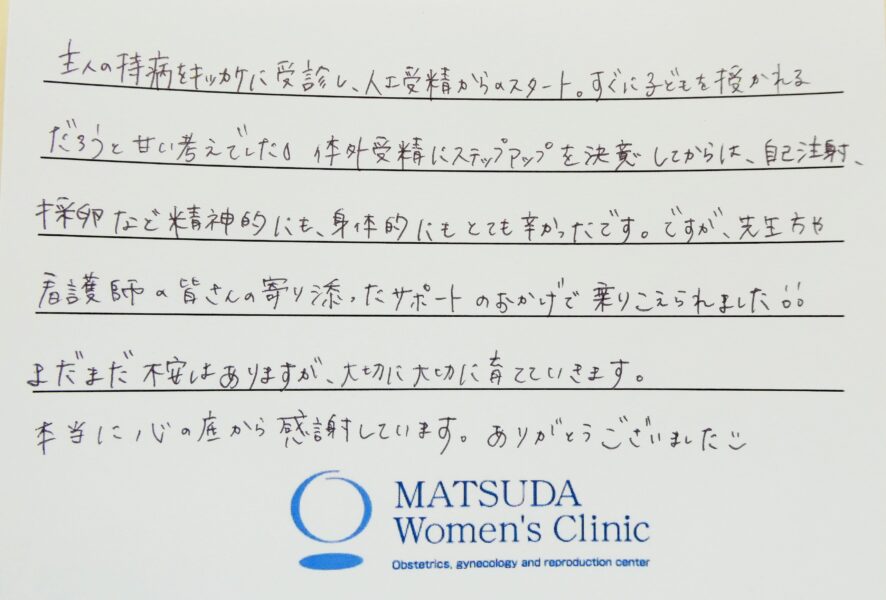 主人の持病をキッカケに受診し、人工受精からのスタート。すぐに子どもを授かれる
だろうと甘い考えでした。体外受精にステップアップを決意してからは、自己注射、
採卵など精神的にも、身体的にもとても辛かったです。ですが、先生方や
看護師の皆さんの寄り添ったサポートのおかげで乗りこえられました
まだまだ不安はありますが、大切に大切に育てていきます。
本当に心の底から感謝しています。ありがとうございました
MATSUDA
Women's Clinic
Obstetrics, gynecology and reproduction center